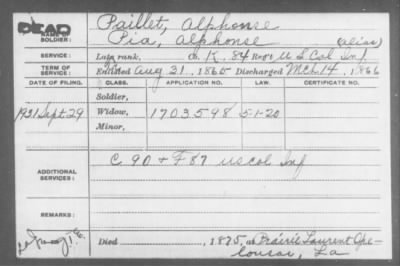 DEAD
NAME OF SOLDIER: Paillet, Alphonse
Pia, Alphonse (alias)
SERVICE: Late rank, Co. K, 84 Reg't U S Col Inf.
TERM OF SERVICE: Enlisted Aug 31, 1865 Discharged Mch 14, 1866
DATE OF FILING. CLASS. APPLICATION NO. CERTIFICATE NO. LAW.
Soldier,
1921 Sept 29 Widow, 1703598 5-1-20
Minor,
ADDITIONAL SERVICES: C 90 + F 87 US Col Inf
REMARKS:
Died , 1875, at Prairie Laurent Ope-
lousas, La